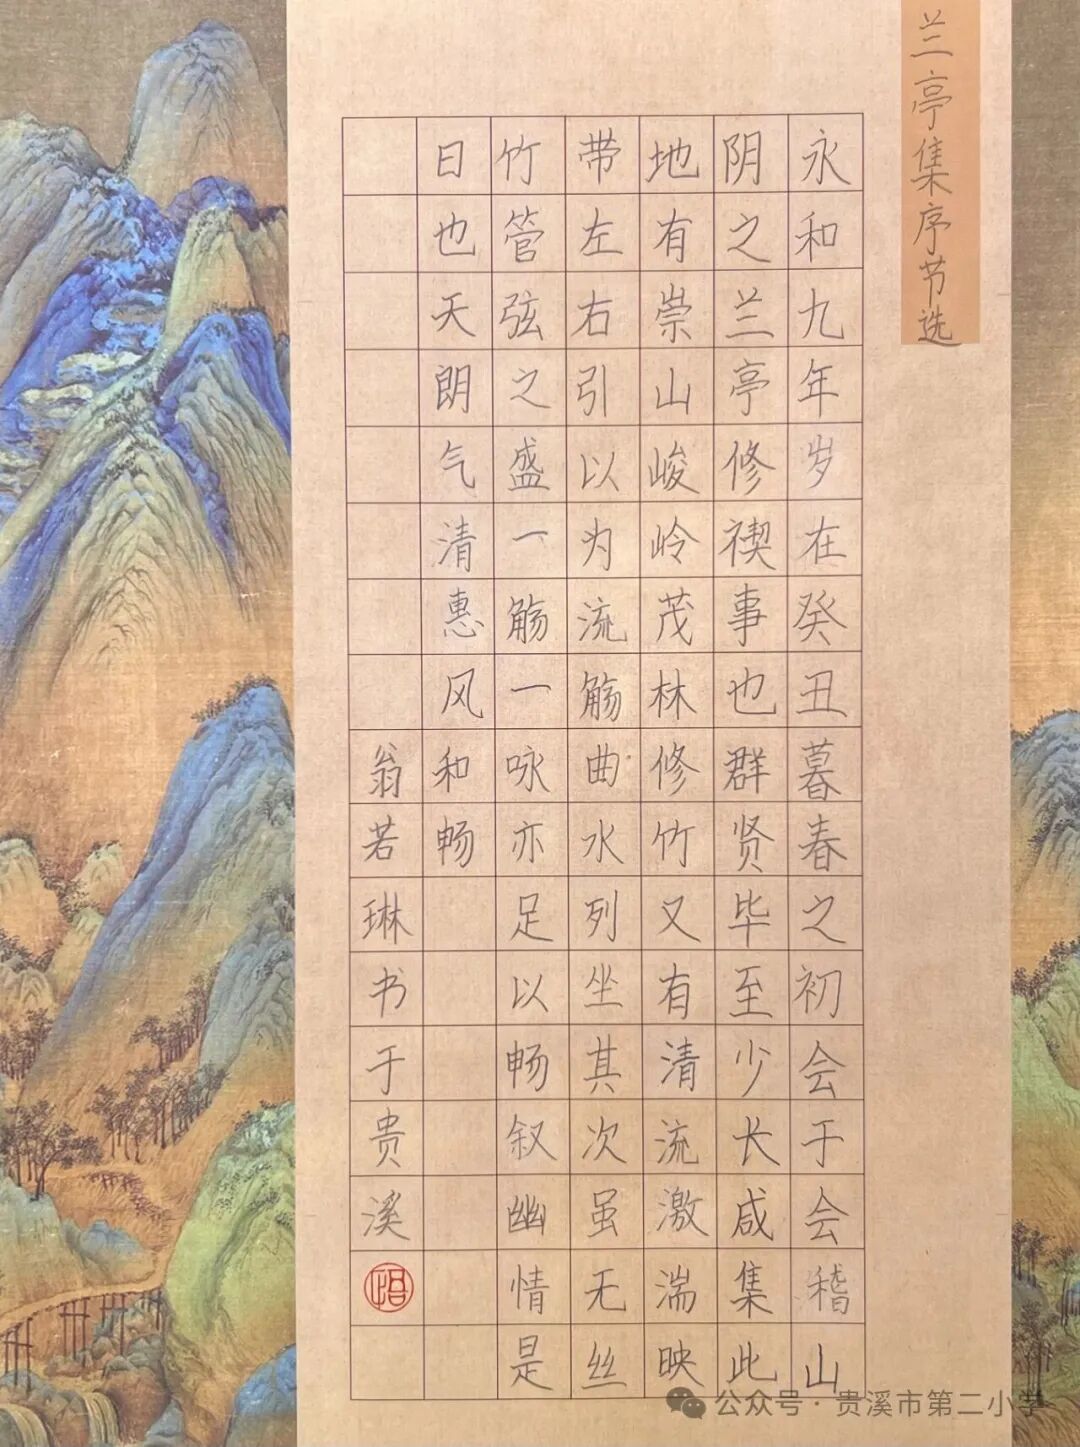 兰亭集序节选
永和九年岁在癸丑暮春之初会于会稽山
阴之兰亭修禊事也群贤毕至少长咸集此
地有崇山峻岭茂林修竹又有清流激湍映
带左右引以为流觞曲水列坐其次虽无丝
竹管弦之盛一觞一咏亦足以畅叙幽情是
日也天朗气清惠风和畅
翁若琳书于贵溪
公众号·贵溪市第二小学